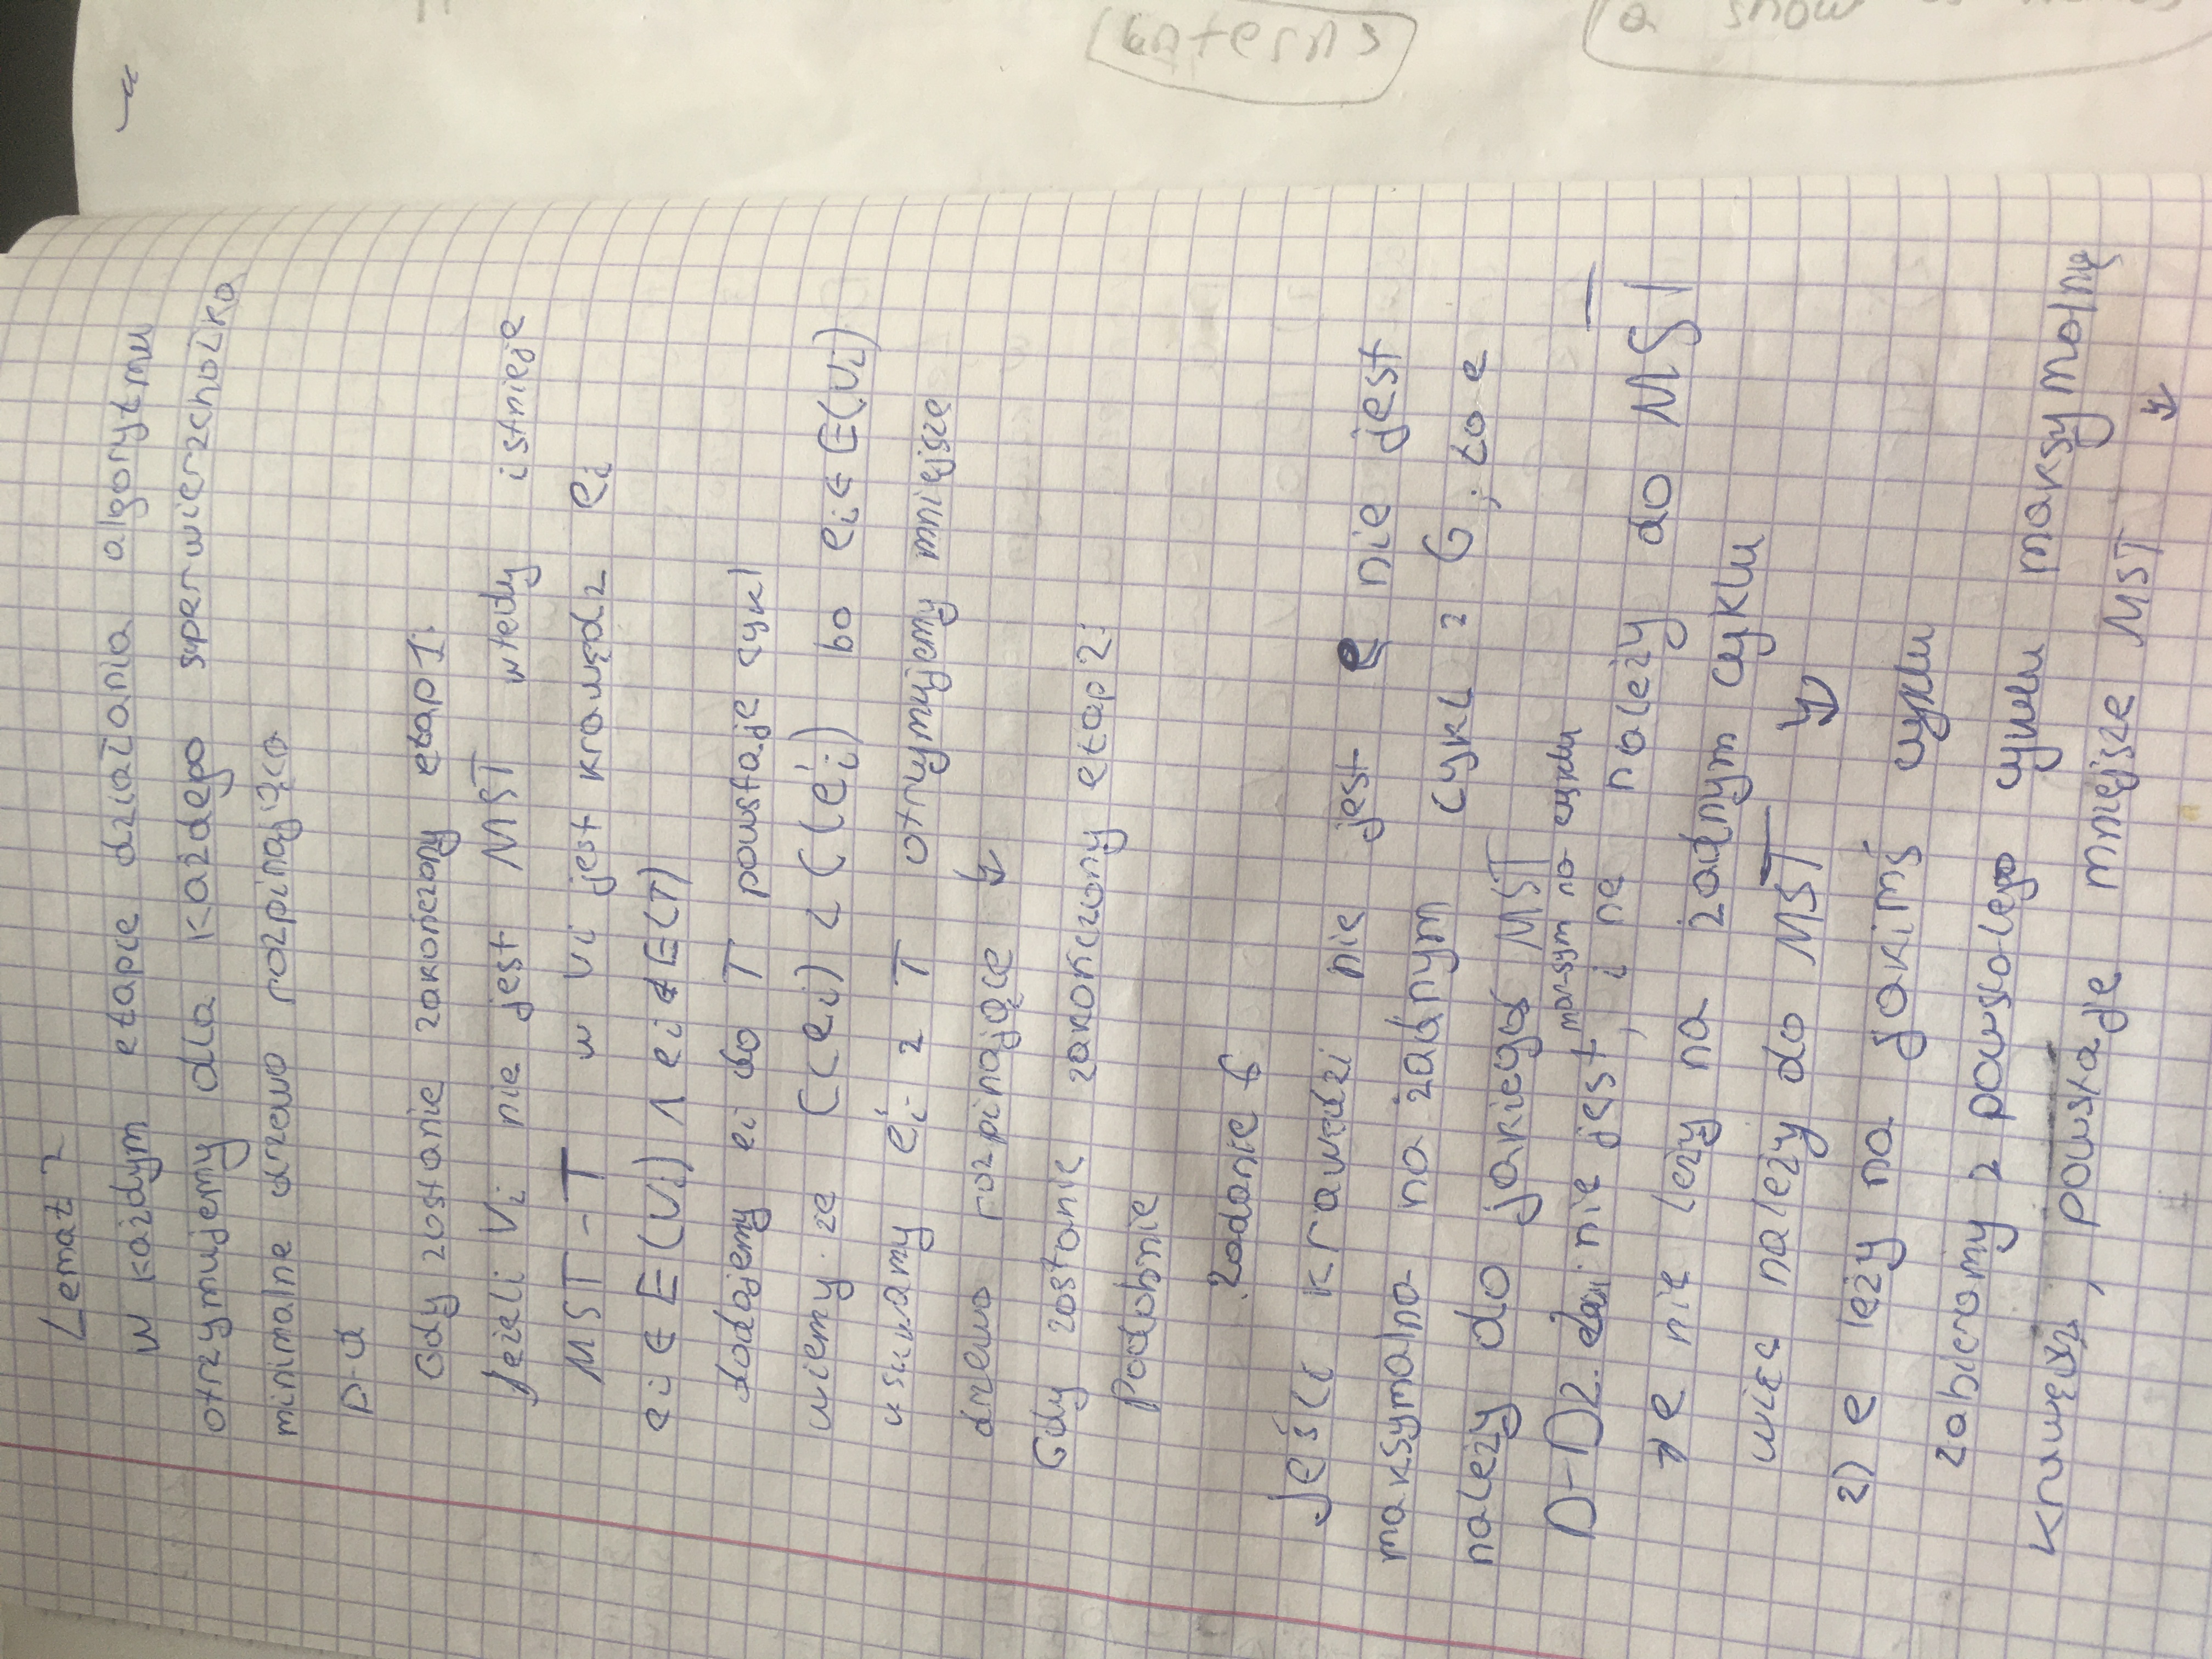 Lemat 2
W każdym etapie działania algorytmu
otrzymujemy dla każdego superwierzchołka
minimalne drzewo rozpinająca
D-d
Gdy zostanie zakończony etap 1:
Jeżeli Vi nie jest MST wtedy istnieje
MST - T w Vi jest krawędz ei
ei ∈ E(Vi) ∧ ei ∉ E(T)
dodajemy ei do T powstaje cykl
wiemy ze C(ei) < C(e'i) bo ei ∈ E(Vi)
usuwamy e'i z T otrzymujemy mniejsze
drzewo rozpinające ↯
Gdy zostanie zakończony etap 2:
Podobnie
Zadanie 6
Jeśli krawędzi nie jest e nie jest
maksymalna na żadnym cykl z G, to e
należy do jakiegoś MST
D-D2. nie jest, maksym na cyklu i ne należy do MST
→ e nie leży na żadnym cyklu
więc należy do MST ↯
2) e leży na jakimś cyklu
zabieramy z powstałego cyklu maksymalną
krawędz, powstaje mniejsze MST ↯